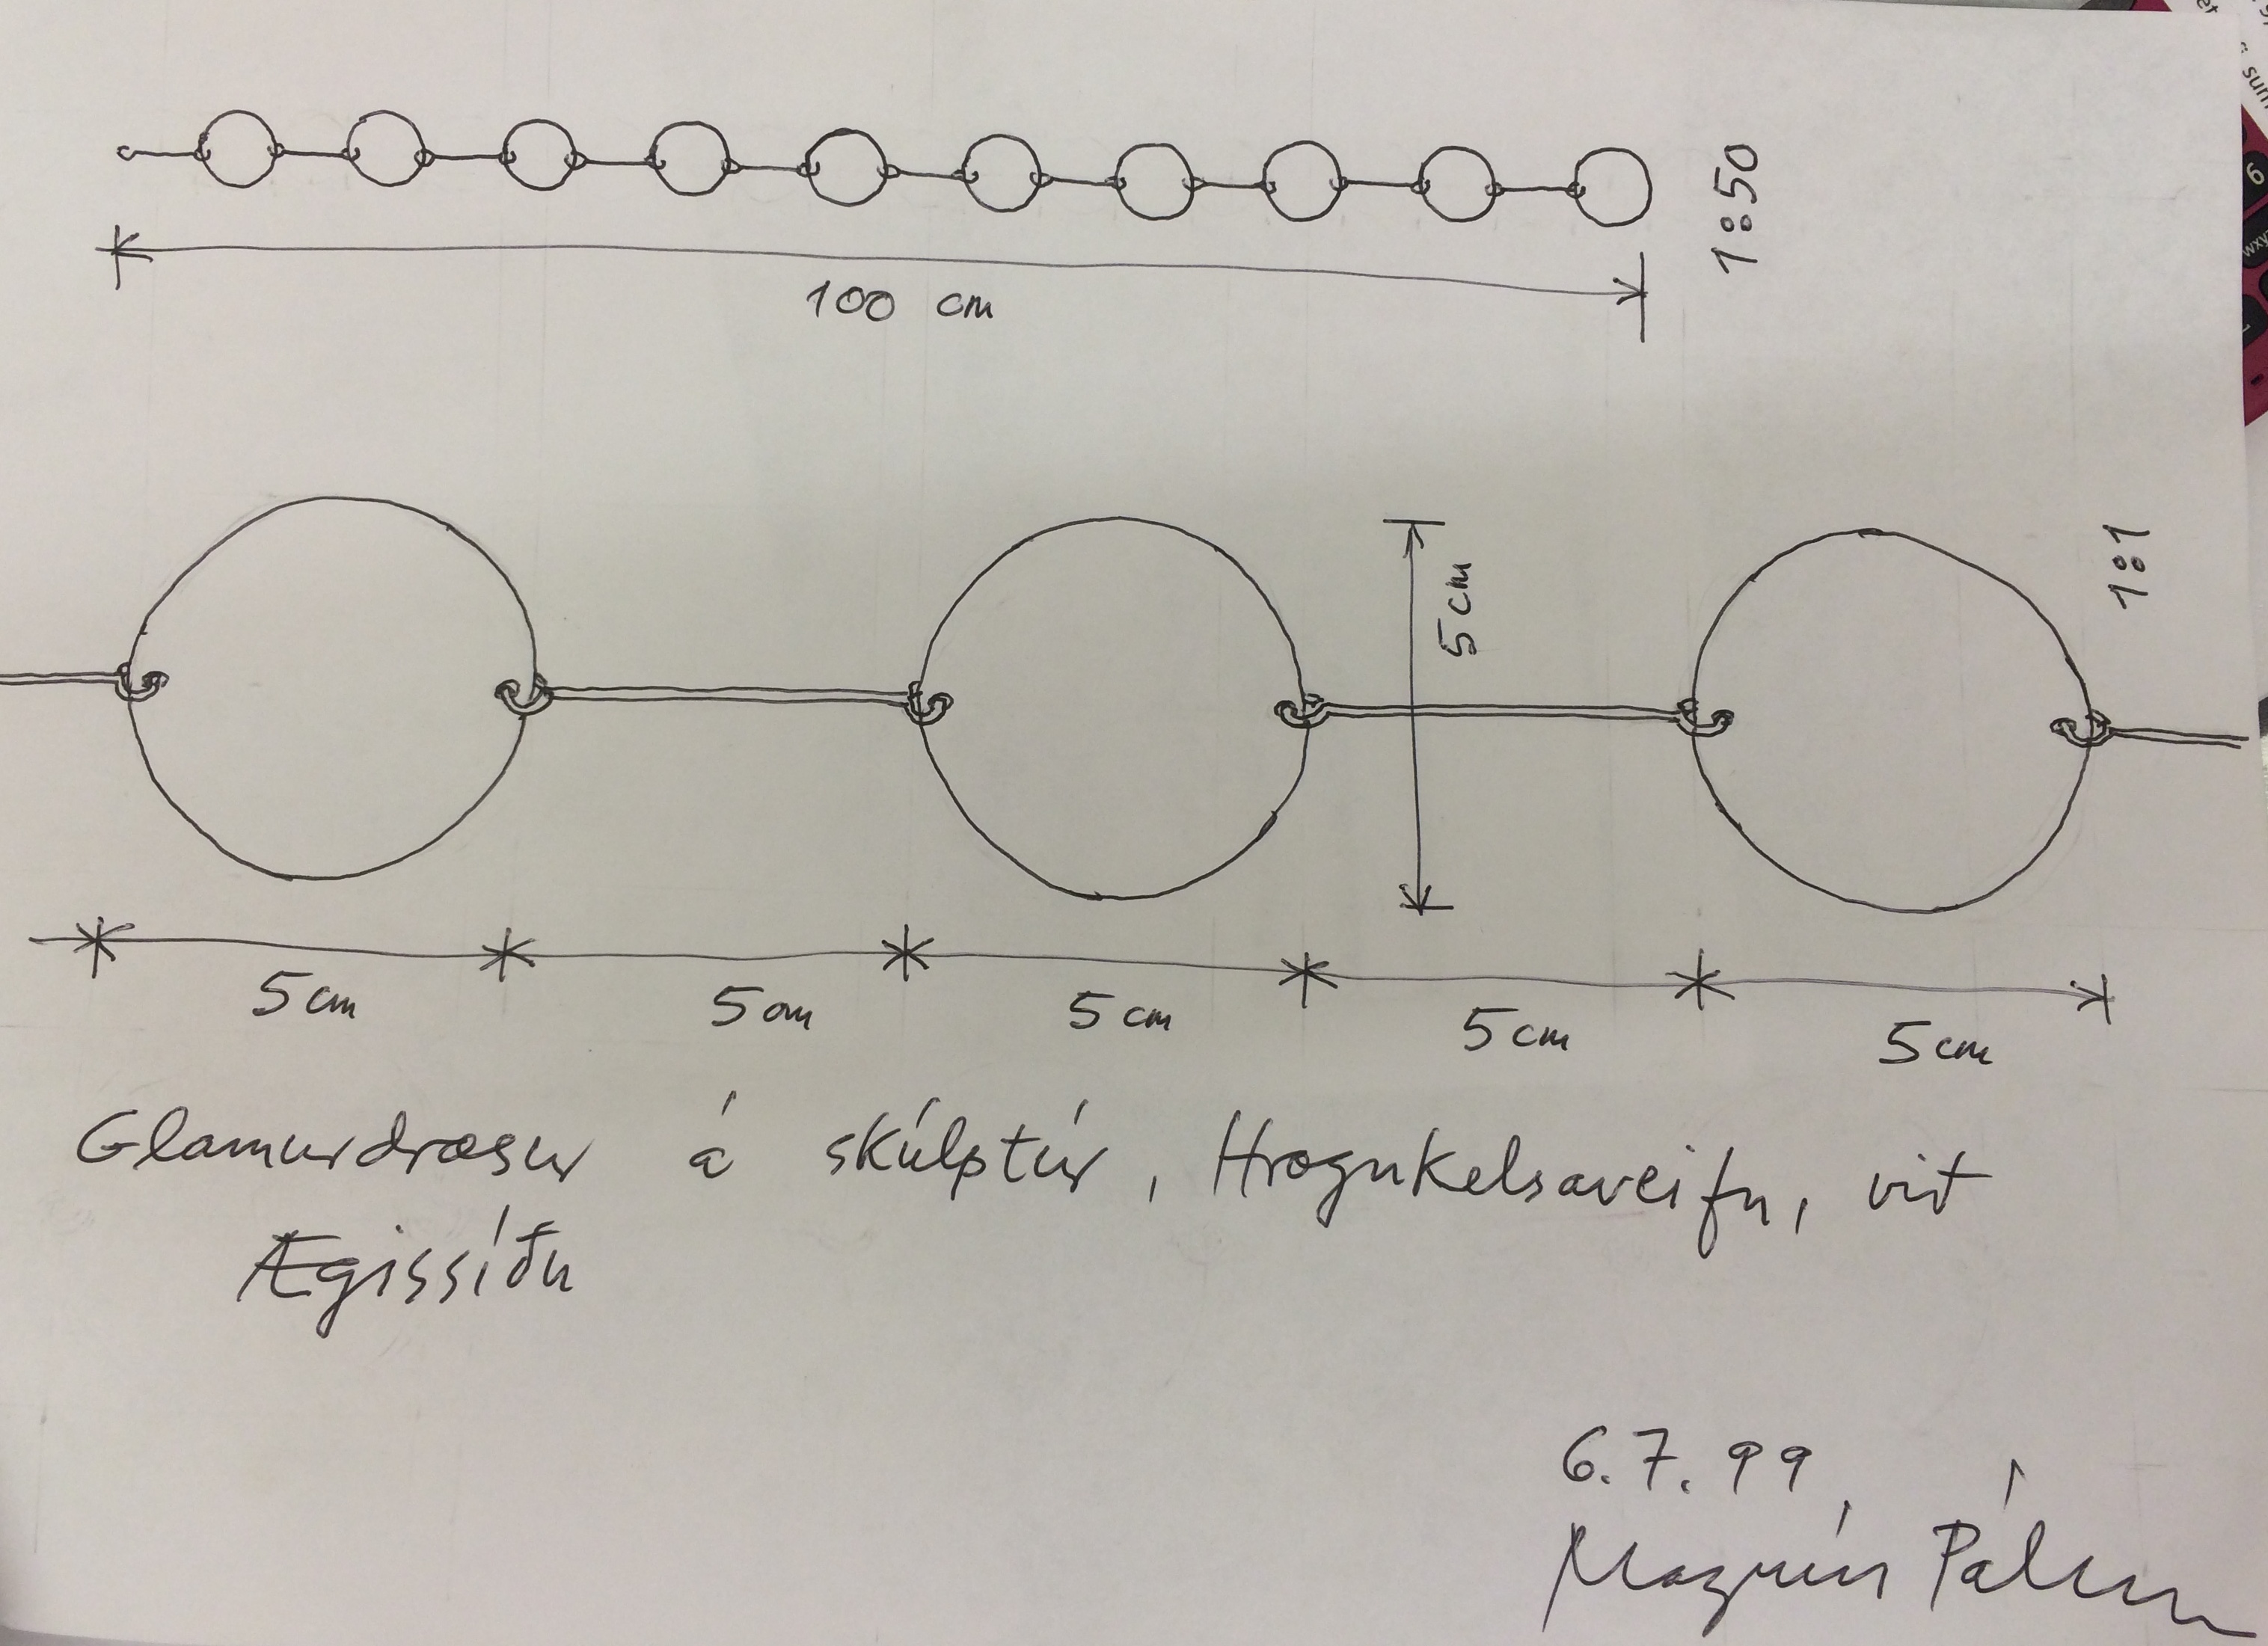 1:50
100 cm
1:1
5 cm
5 cm
5 cm
5 cm
5 cm
5 cm
Glamurdræsur á skúlptúr, Hrognkelsaveifu, við
Ægissíðu
6.7.99
Magnús Pálsson